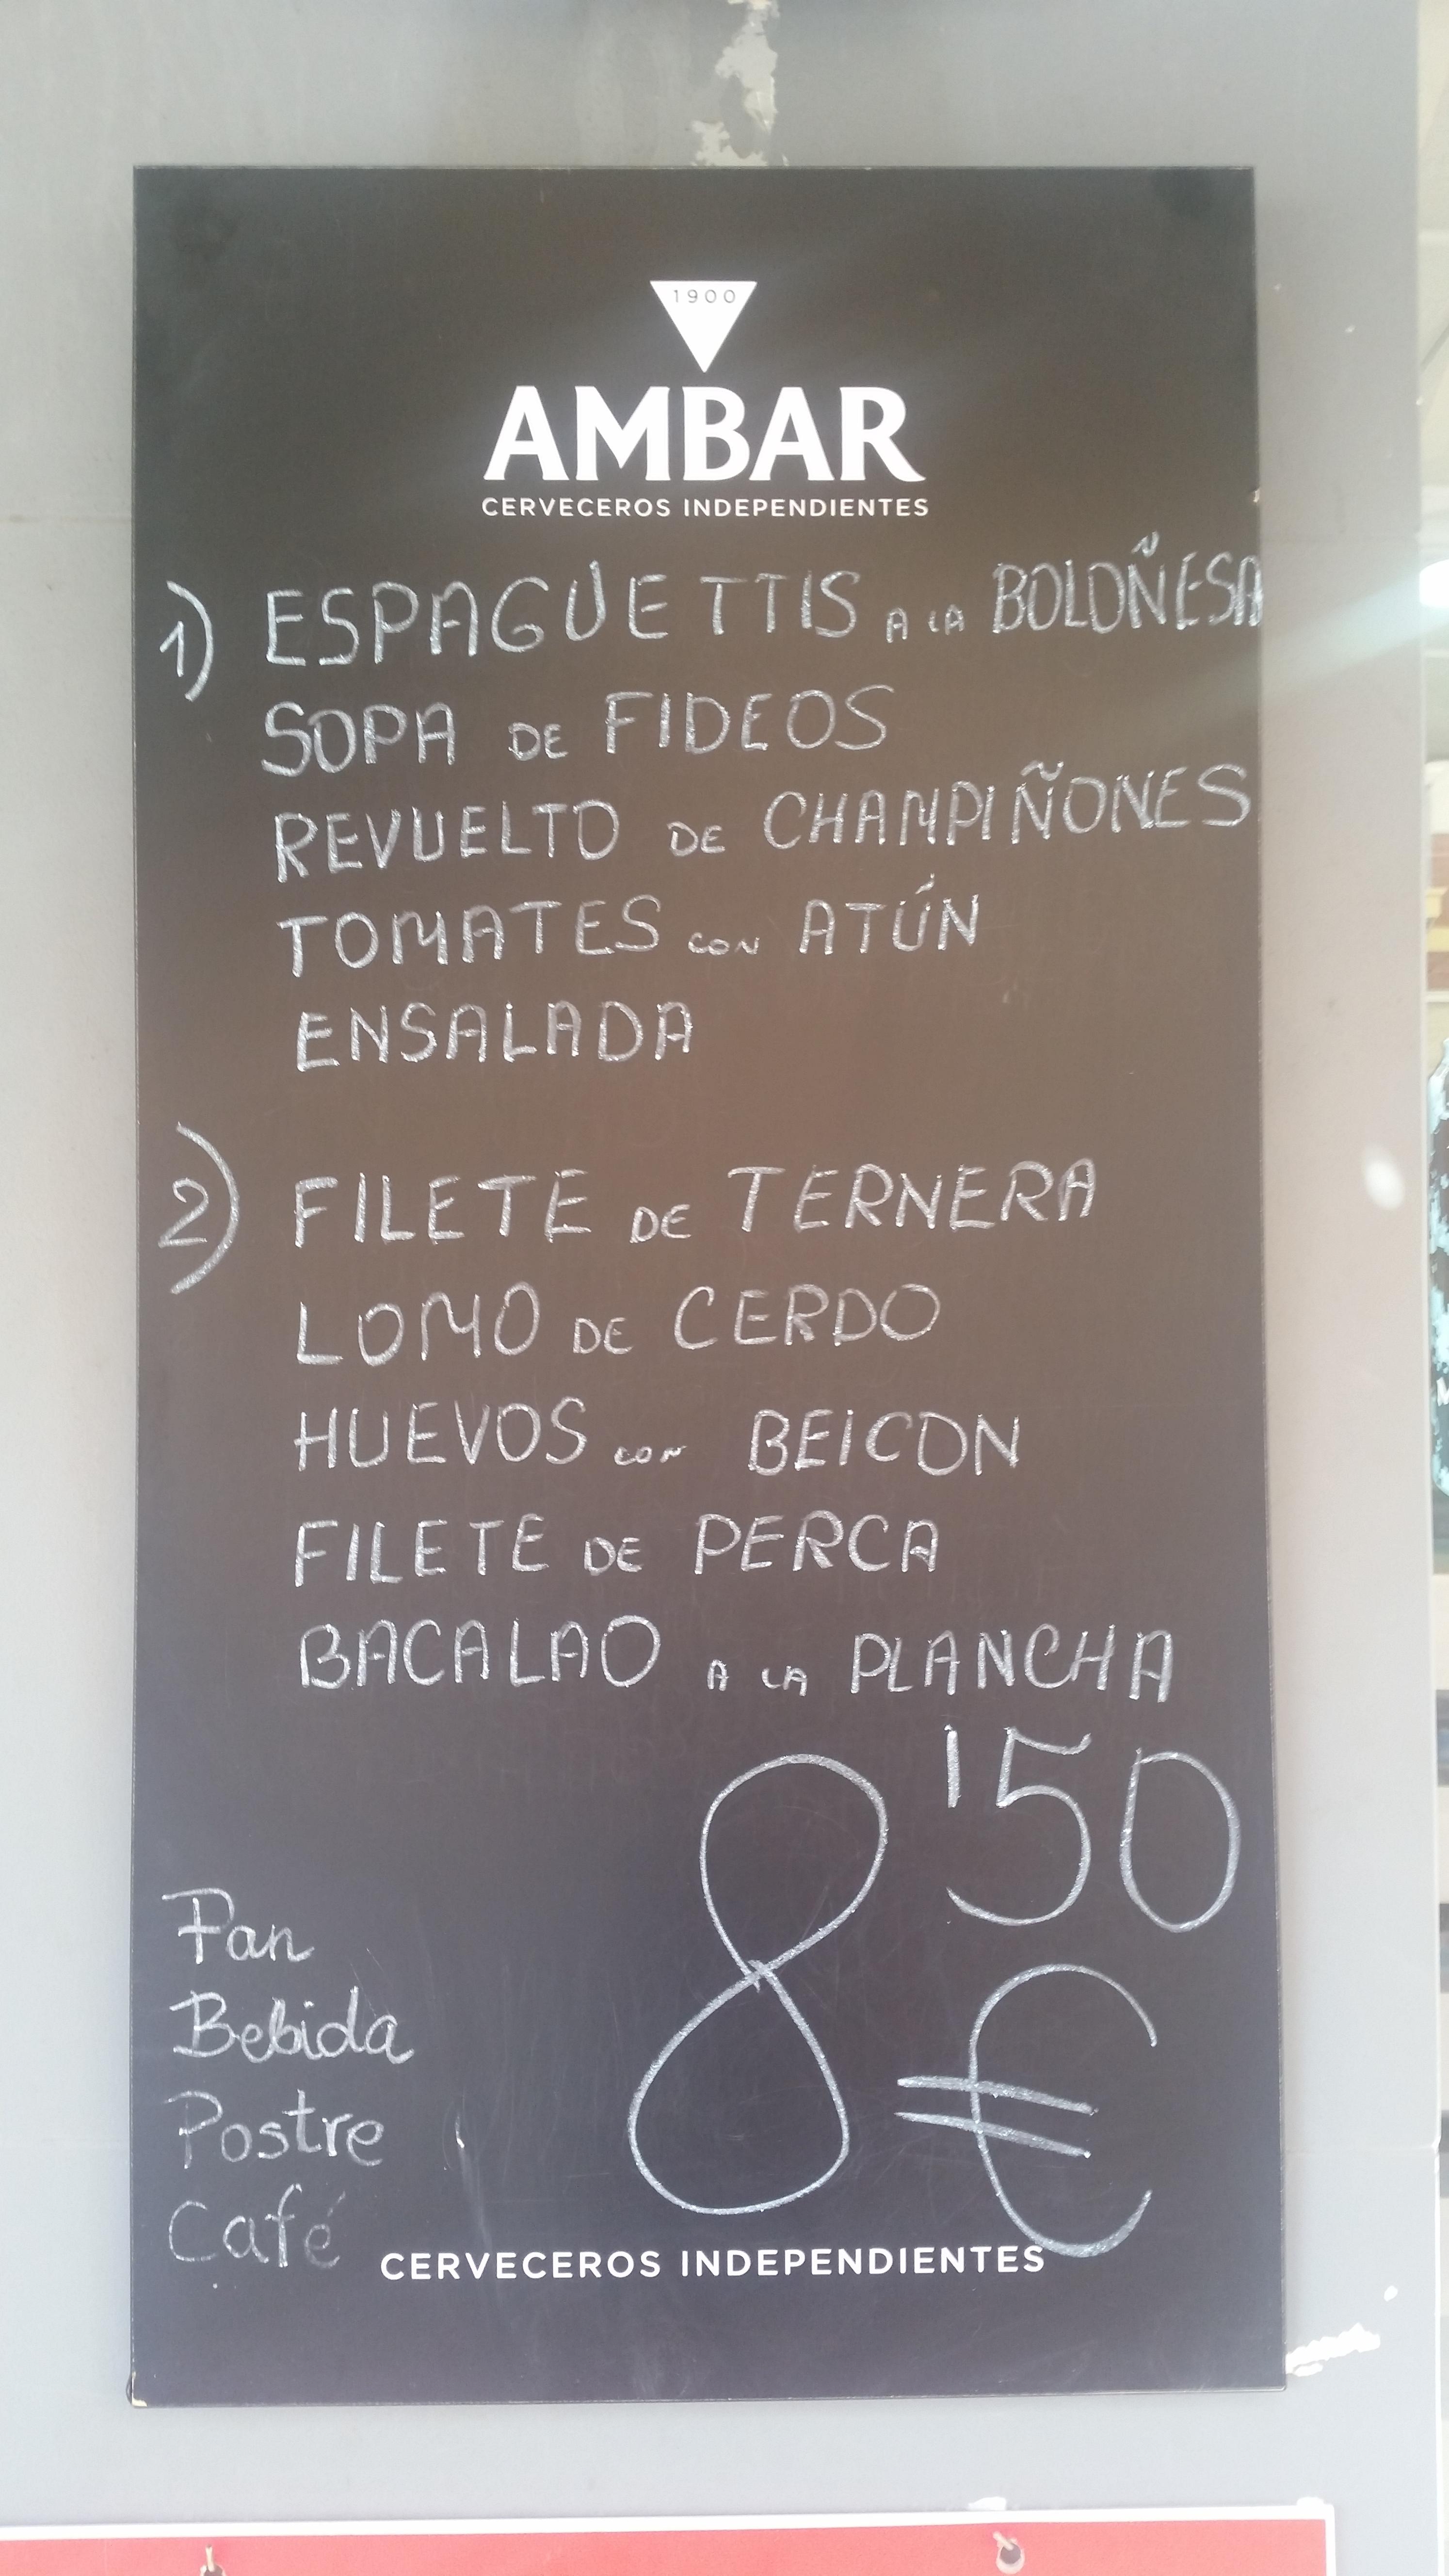 1900
AMBAR
CERVECEROS INDEPENDIENTES
1) ESPAGUETTIS A LA BOLOÑESA
SOPA DE FIDEOS
REVUELTO DE CHAMPIÑONES
TOMATES CON ATÚN
ENSALADA
2) FILETE DE TERNERA
LOMO DE CERDO
HUEVOS CON BEICON
FILETE DE PERCA
BACALAO A LA PLANCHA
8'50
€
Pan
Bebida
Postre
Café
CERVECEROS INDEPENDIENTES